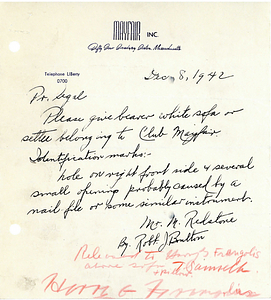 MAYFAIR INC.
Fifty Four Broadway Boston, Massachusetts
Telephone LIberty
0700
Dec 8, 1942
Mr. Segel
Please give bearer white sofa or
settee belonging to Club Mayfair.
Identification marks:-
hole on right front side & several
small openings probably caused by a
nail file or some similar instrument.
Mr. M. Redstone
By Robt J Bratton
Released to Harry Frangolis
above sofa
Harry E Frangolis